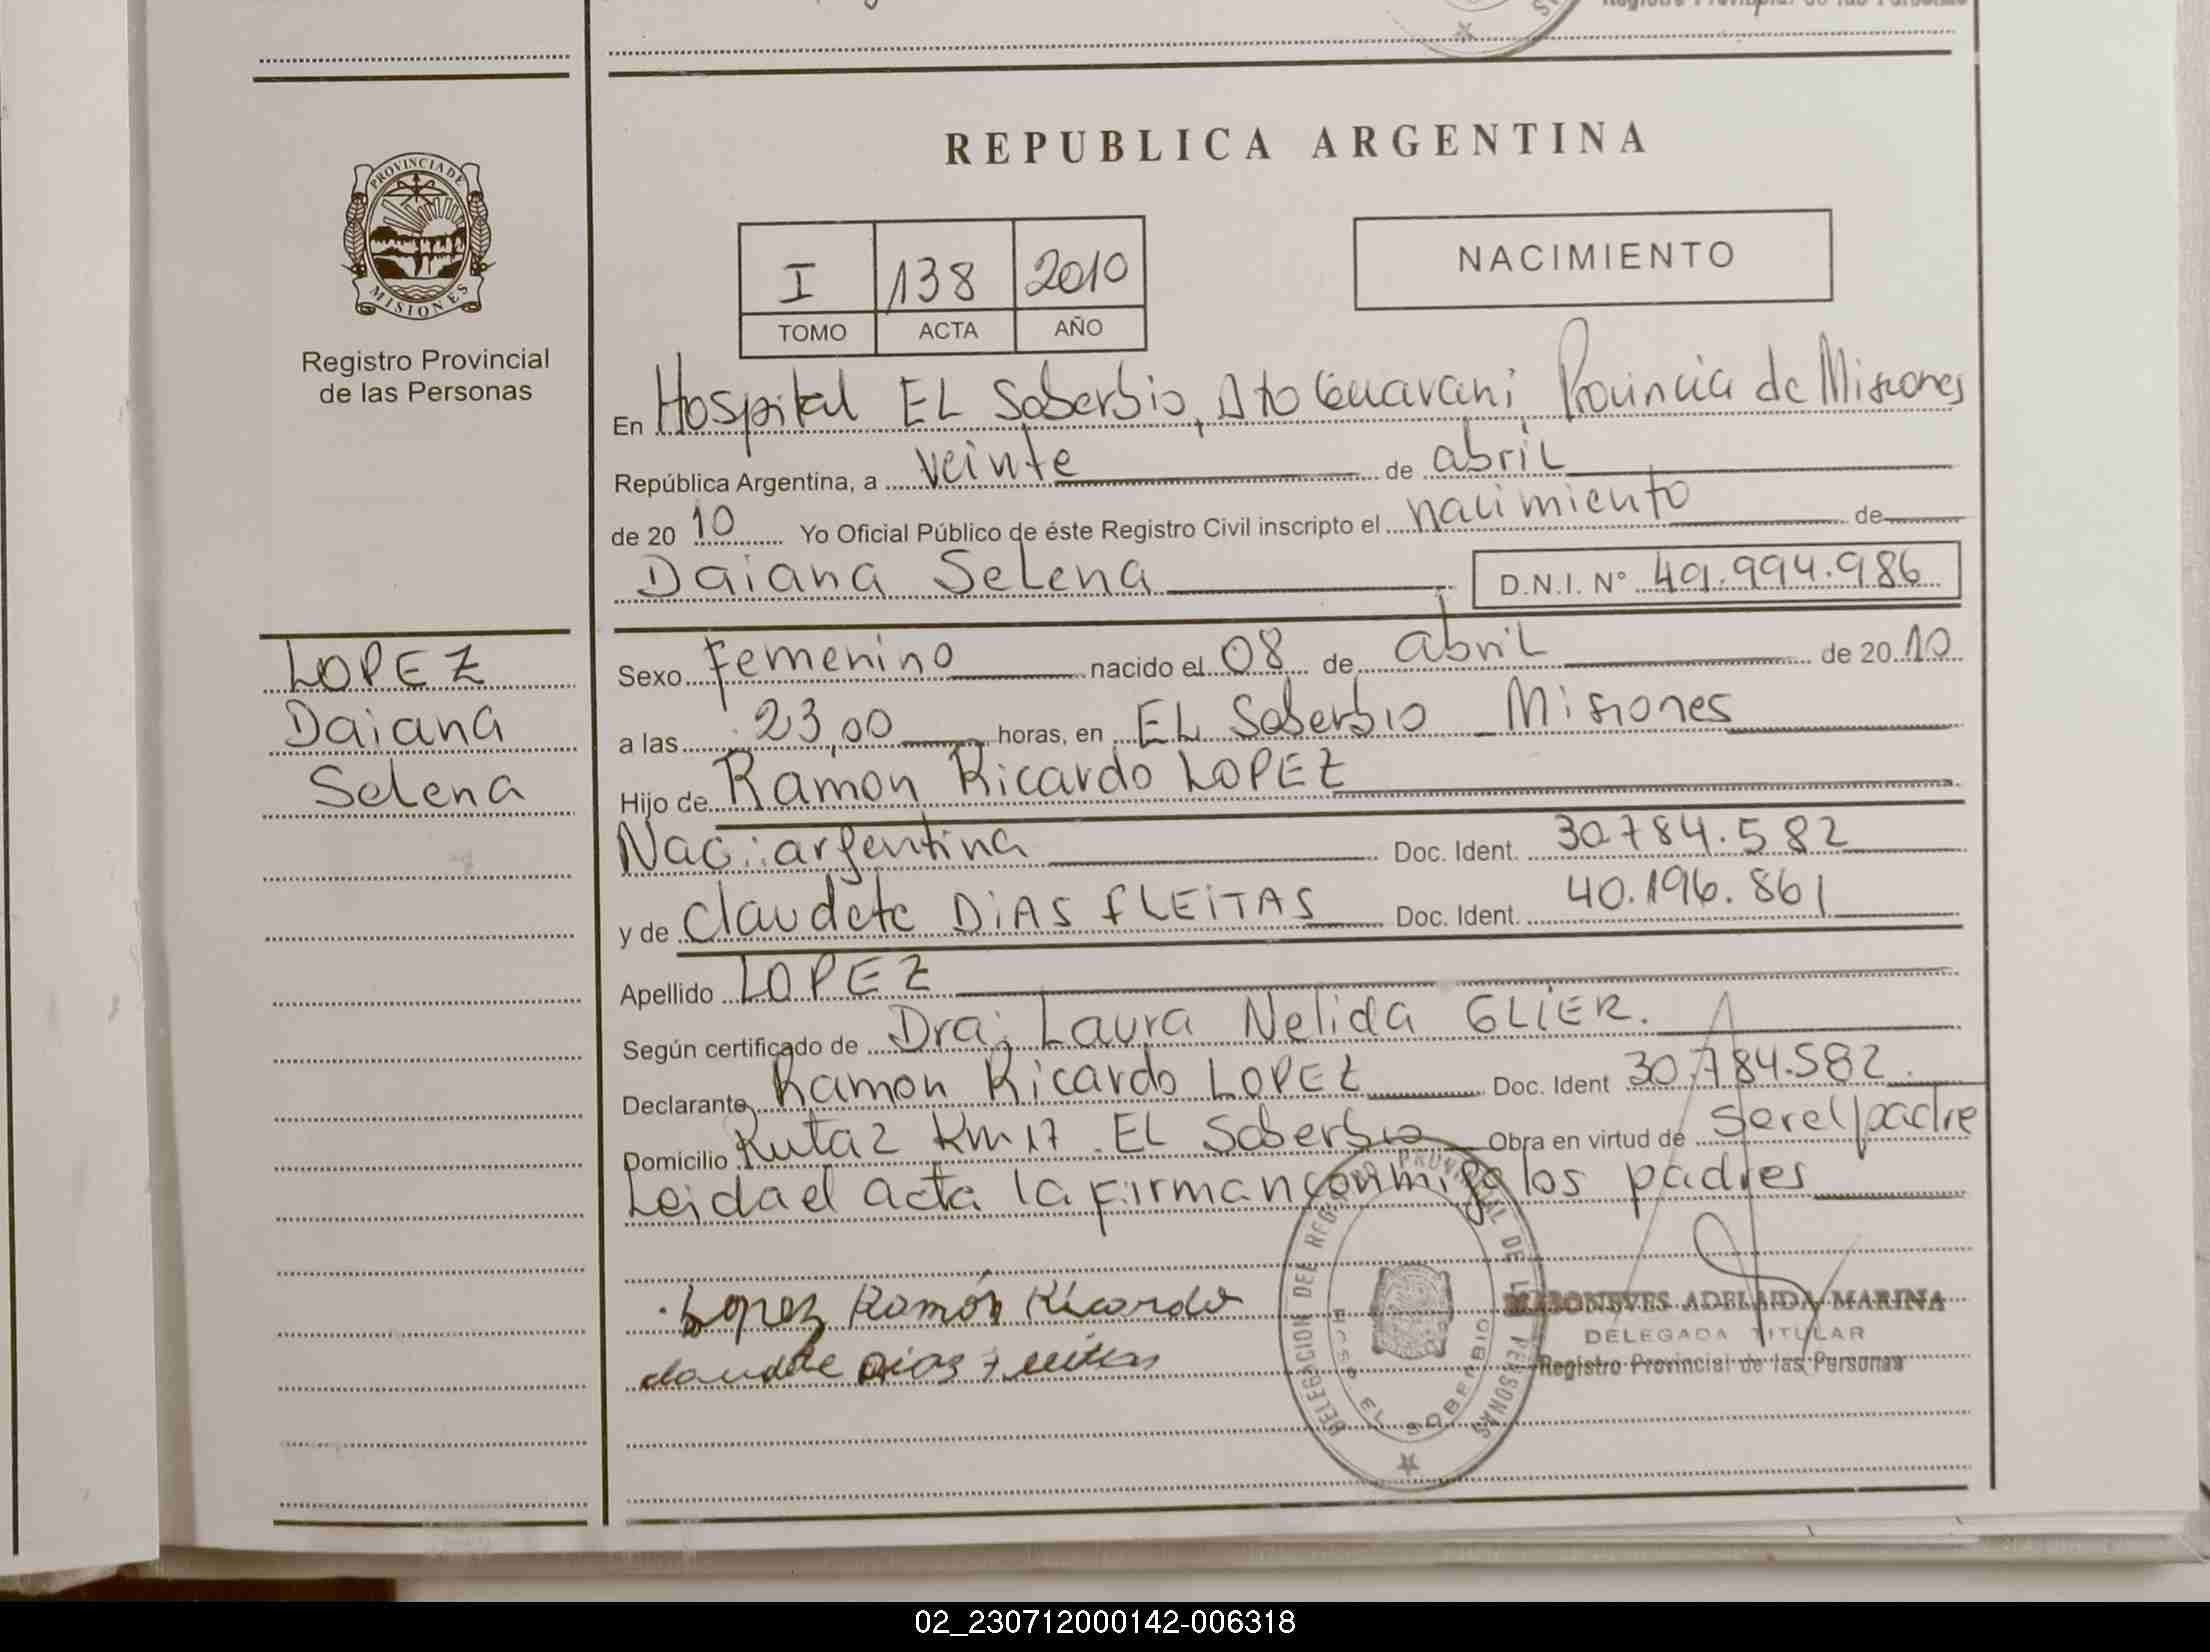 REPUBLICA ARGENTINA
PROVINCIA DE
MISIONES
Registro Provincial
de las Personas
I 138 2010
TOMO ACTA AÑO
NACIMIENTO
En Hospital EL Soberbio, Dto Guarani, Provincia de Misiones
República Argentina, a veinte de abril
de 2010 Yo Oficial Público de éste Registro Civil inscripto el nacimiento de
Daiana Selena D.N.I. N° 49.994.986
LOPEZ
Daiana
Selena
Sexo Femenino nacido el 08 de abril de 2010
a las 23,00 horas, en EL Soberbio Misiones
Hijo de Ramon Ricardo LOPEZ
Nac: argentina Doc. Ident. 30.784.582
y de Claudete DiAS fLEiTAS Doc. Ident. 40.196.861
Apellido LOPEZ
Según certificado de Dra: Laura Nelida GLiER.
Declarante Ramon Ricardo LOPEZ Doc. Ident 30.784.582
Domicilio Ruta 2 Km 17 EL Soberbio Obra en virtud de ser el padre
Leida el acta la firman conmigo los padres
Lopez Ramón Ricardo
claudete Dias Fleitas
DELEGACION DEL REGISTRO PROVINCIAL DE LAS PERSONAS
HOSP. EL SOBERBIO
ADELAIDA MARINA
DELEGADA TITULAR
Registro Provincial de las Personas
02_230712000142-006318